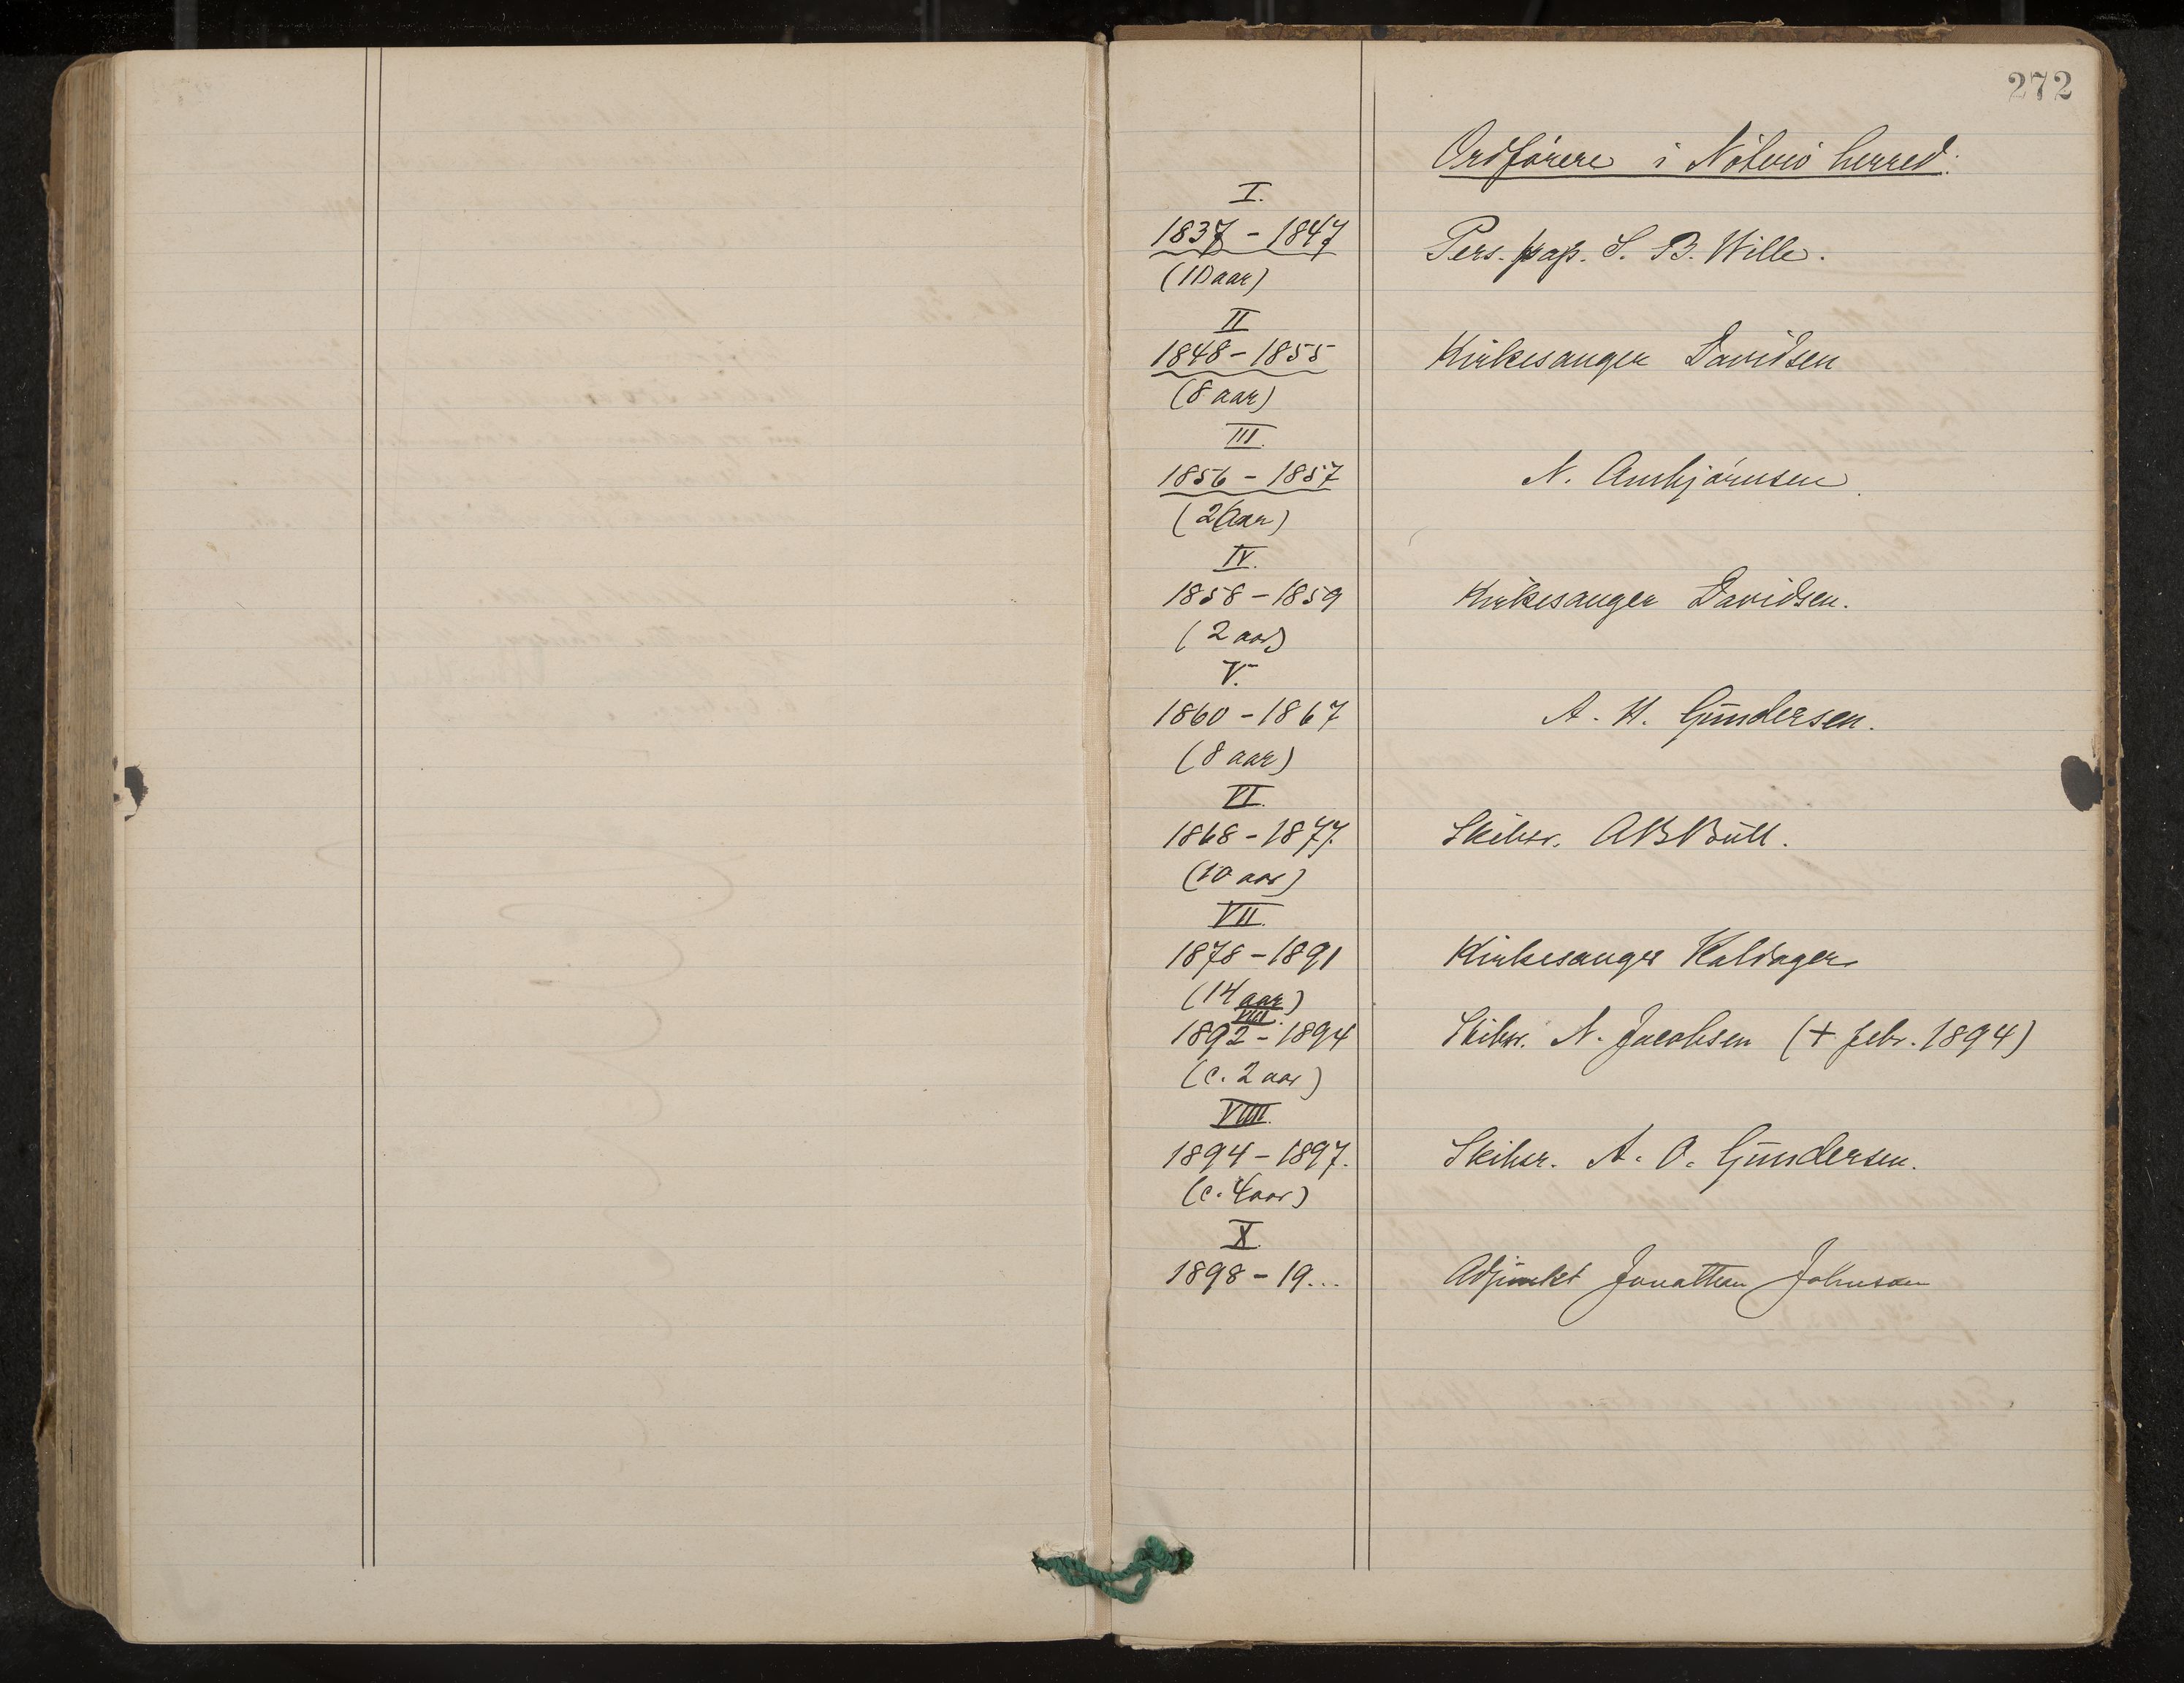 272
Ordførere i Nøterø herred.
I.
1837 - 1847 Pers. kap. S. B. Wille.
(11 aar)
II
1848 - 1855 Kirkesanger Davidsen
(8 aar)
III.
1856 - 1857 N. Anhjørnsen
(2 Aar)
IV.
1858 - 1859 Kirkesanger Davidsen.
(2 aar)
V.
1860 - 1867 A. H. Gundersen.
(8 aar)
VI.
1868 - 1877. Skibsr. A B Bull.
(10 aar)
VII.
1878 - 1891 Kirkesanger Kaldager
(14 aar)
VIII.
1892 - 1894 Skibsr. N. Jacobsen († febr. 1894)
(c. 2 aar)
VIIII.
1894 - 1897. Skibsr. A. O. Gundersen.
(c. 4 aar)
X.
1898 - 19... Adjunkt Jonathan Johnson